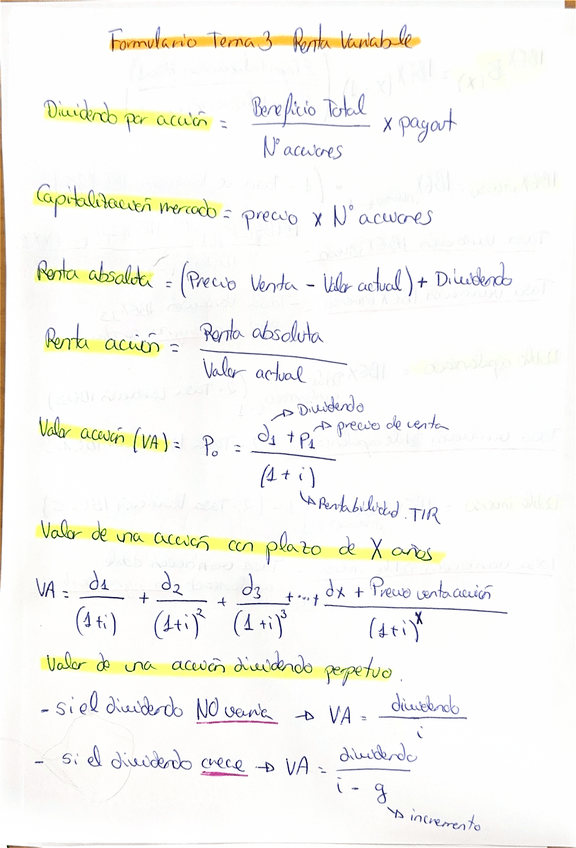 Formulario Tema 3 Renta Variable
Dividendo por acción = Beneficio Total / Nº acciones x payout
Capitalización mercado = precio x Nº acciones
Renta absoluta = (Precio Venta - Valor actual) + Dividendo
Renta acción = Renta absoluta / Valor actual
→ Dividendo
Valor acción (VA) = P₀ = d1 + P1 / (1 + i) → precio de venta
↳ Rentabilidad. TIR
Valor de una acción con plazo de X años
VA = d1 / (1+i) + d2 / (1+i)² + d3 / (1+i)³ + ... + dx + Precio venta acción / (1+i)ˣ
Valor de una acción dividendo perpetuo.
- si el dividendo NO varia → VA = dividendo / i
- si el dividendo crece → VA = dividendo / i - g
↳ incremento